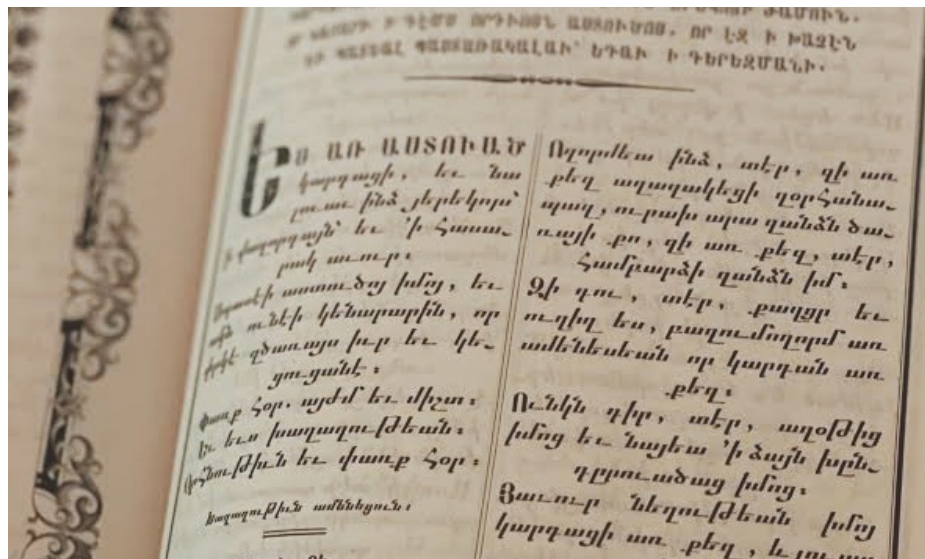 Ի ԴԷՄՍ ՈՐԴԻՈՅՆ ԱՍՏՈՒԾՈՅ, ՈՐ ԷՋ Ի ԽԱՉԷՆ
ՊԱՏԱՌԱԿԱԼԱՒ՝ ԵԴԱՒ Ի ԳԵՐԵԶՄԱՆԻ.
ԵՍ ԱՌ ԱՍՏՈՒԱԾ
կարդացի, եւ նա
լուաւ ինձ յերեկորս՝
ի վաղորդայն՝ եւ ՚ի հասա-
րակ աւուր։
աստուծոյ իմոյ, եւ
ունէի կենարարին, որ
զծառայս իւր եւ կե-
ցուցանէ։
Փառք Հօր. այժմ եւ միշտ։
Եւ եւս խաղաղութեան։
Օրհնութիւն եւ փառք Հօր։
Խաղաղութիւն ամենեցուն։
Ողորմեա ինձ, տէր, զի առ
քեզ աղաղակեցի զօրհանա-
պազ, ուրախ արա զանձն ծա-
ռայի քո, զի առ քեզ, տէր,
համբարձի զանձն իմ։
Զի դու, տէր, քաղցր եւ
ուղիղ ես, բազումողորմ առ
ամենեսեան որ կարդան առ
քեզ։
Ունկն դիր, տէր, աղօթից
իմոց եւ նայեաւ ՚ի ձայն խըն-
դըրուածաց իմոց։
Յաւուր նեղութեան իմոյ
կարդացի առ քեզ, և